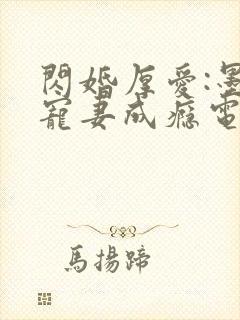 閃婚厚愛:墨
寵妻成癮電
馬揚蹄